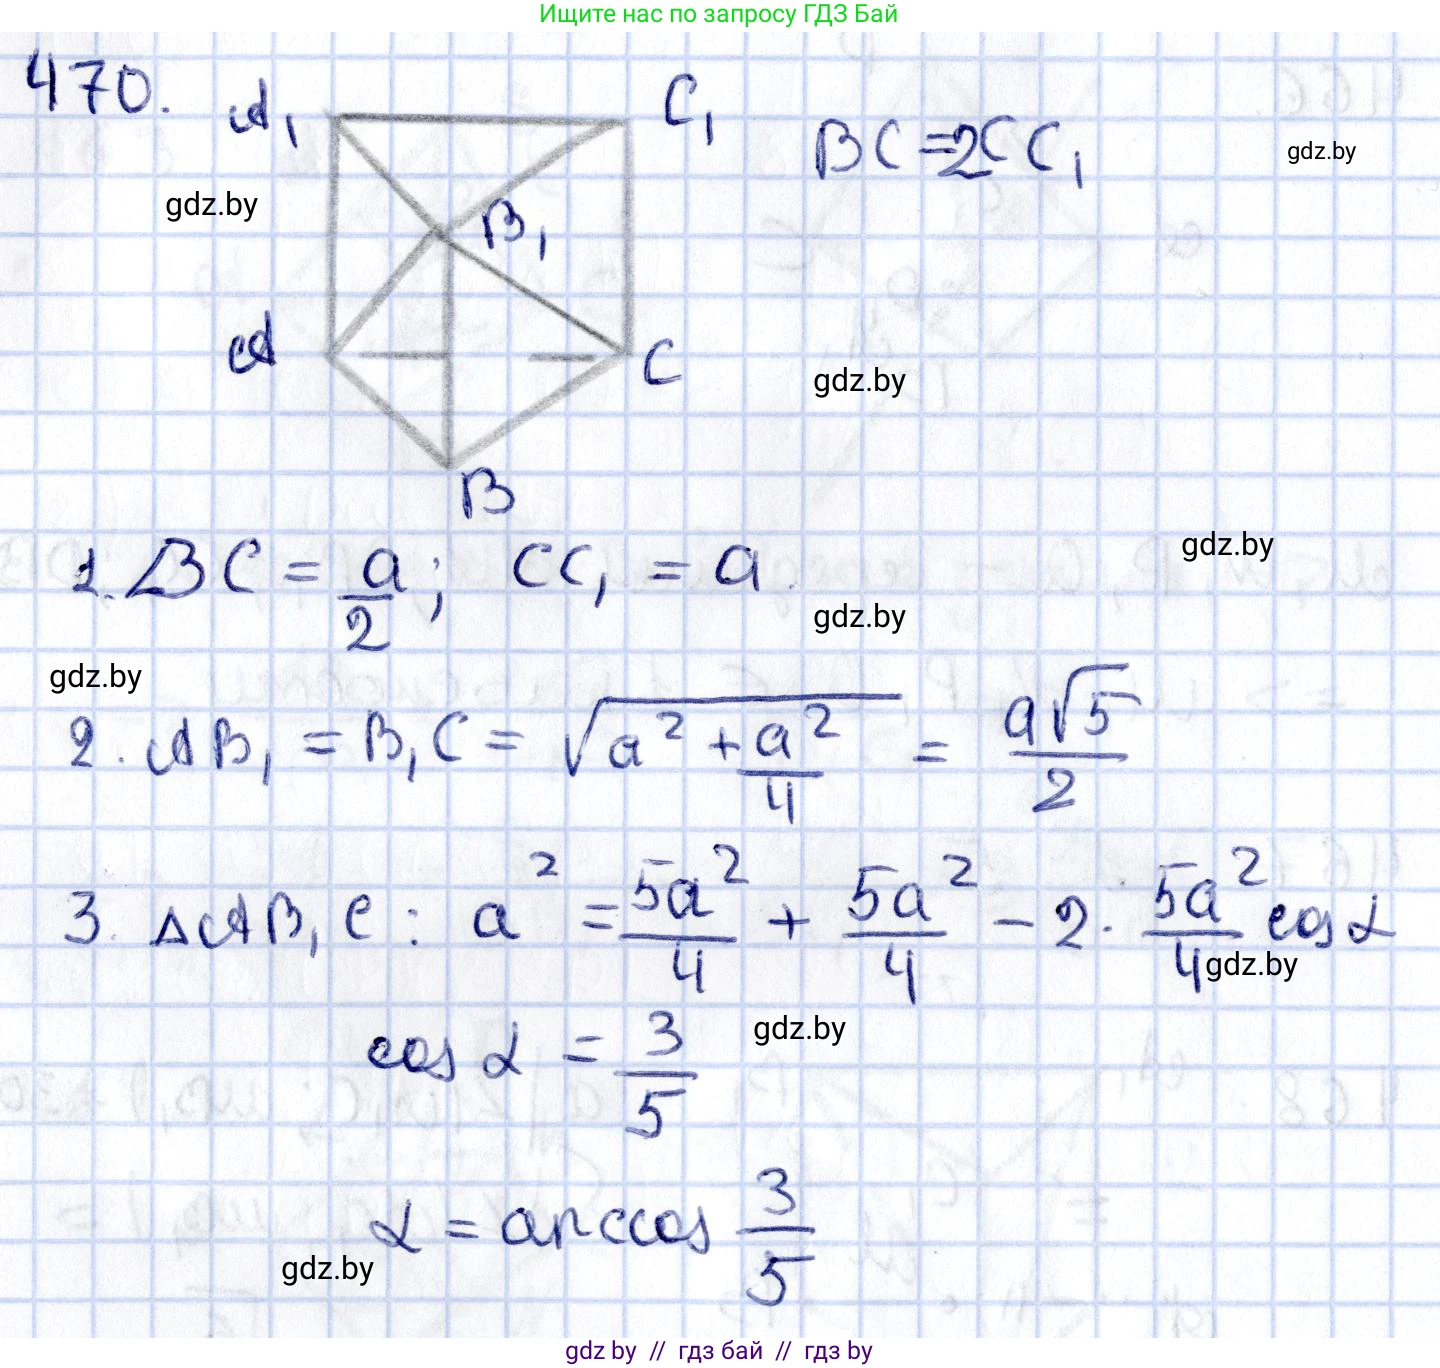 Ищите нас по запросу ГДЗ Бай
470.
A₁
C₁
BC = 2CC₁
gdz.by
gdz.by
B₁
A
C
gdz.by
B
gdz.by
1. BC = a/2; CC₁ = a.
gdz.by
gdz.by
2. AB₁ = B₁C = √(a² + a²/4) = a√5/2
3. ΔAB₁C: a² = 5a²/4 + 5a²/4 - 2 · 5a²/4 cos α
gdz.by
cos α = 3/5
gdz.by
α = arccos 3/5
gdz.by
gdz by // гдз бай // гдз by